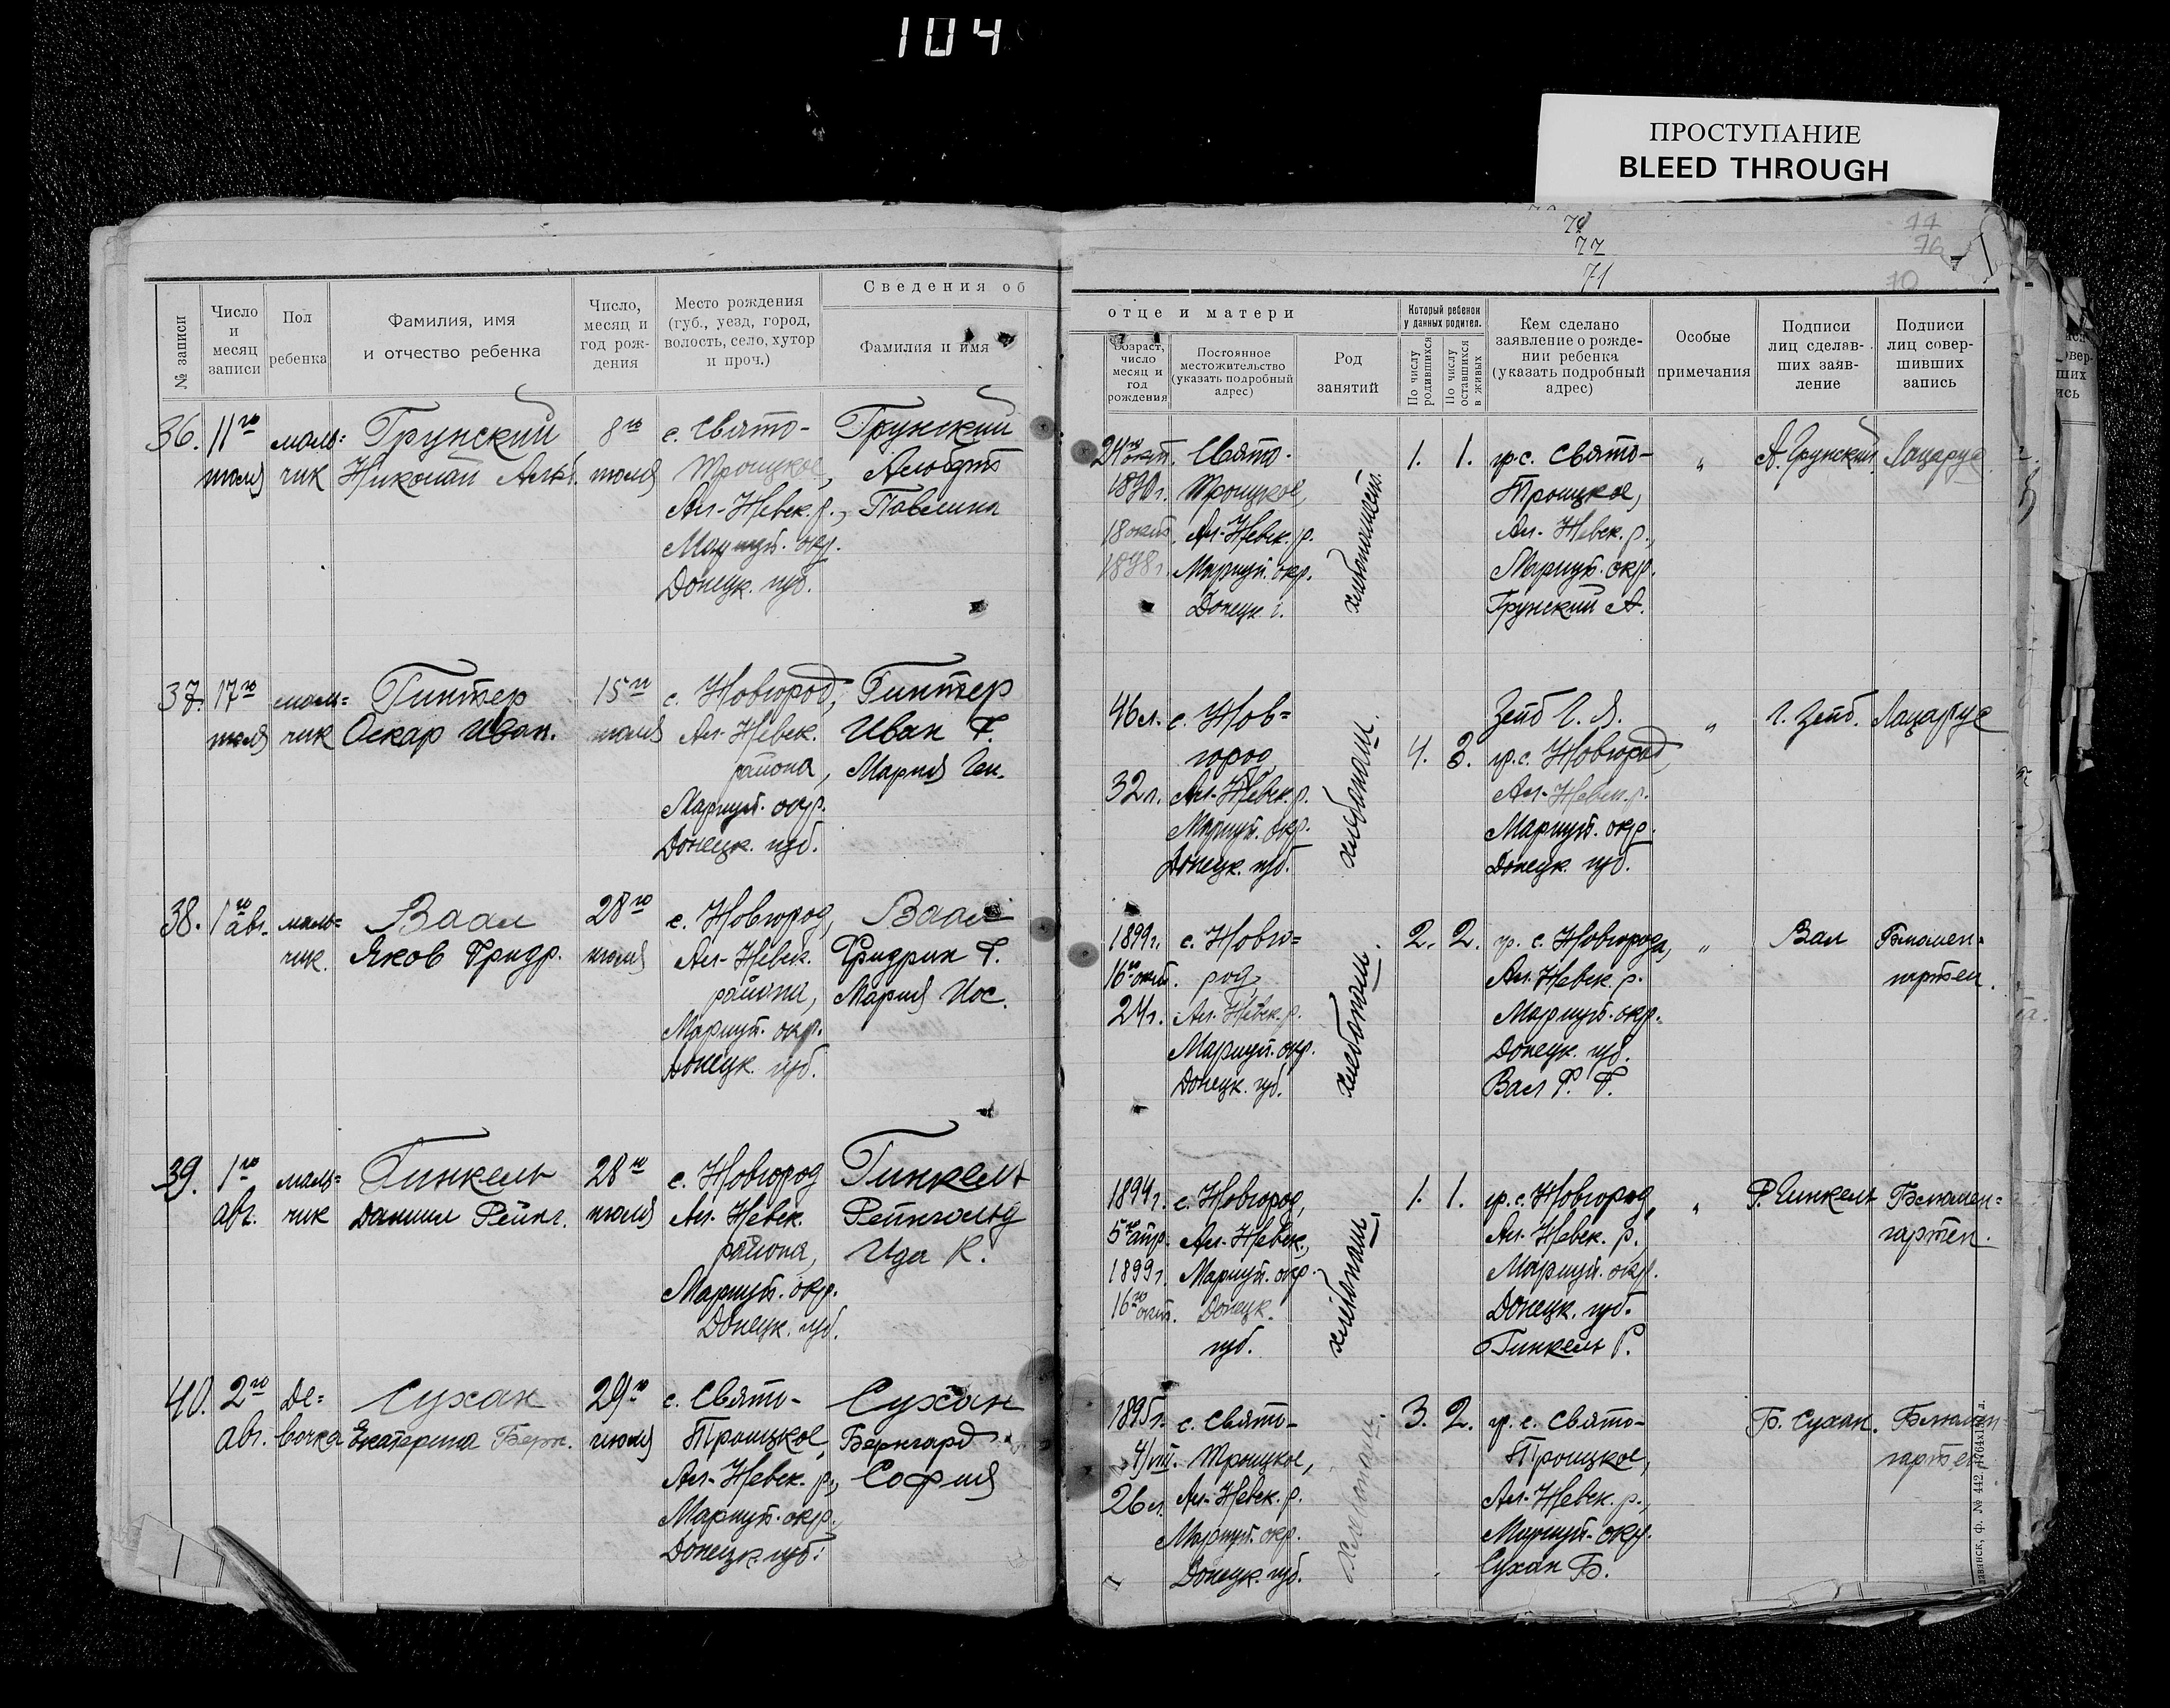 104
ПРОСТУПАНИЕ
BLEED THROUGH
77
71
70
Сведения об
отце и матери
№ записи
Число и месяц записи
Пол ребенка
Фамилия, имя и отчество ребенка
Число, месяц и год рождения
Место рождения (губ., уезд, город, волость, село, хутор и проч.)
Фамилия и имя
Возраст, число месяц и год рождения
Постоянное местожительство (указать подробный адрес)
Род занятий
Который ребенок у данных родител.
По числу родившихся
По числу оставшихся в живых
Кем сделано заявление о рождении ребенка (указать подробный адрес)
Особые примечания
Подписи лиц сделавших заявление
Подписи лиц совершивших запись
36. 11го мальчик Грунский 8го с. Свято- Грунский
июля Николай Альб. июля Троицкое, Альберт
Ал-Невск. р., Павлина
Мариуп. окр.
Донецк. губ.
24го окт. Свято- 1. 1. гр. с. Свято- „ А. Грунский Лацарус
1890 г. Троицкое, Троицкое,
18 окт. Ал-Невск. р. хлебопашест. Ал-Невск. р.,
1898 г. Мариуп. окр. Мариуп. окр.
Донецк. г. Грунский А.
37. 17го мальчик Гинтер 15го с. Новгород, Гинтер
июля Оскар Иван. июля Ал-Невск. Иван Г.
района, Мария Ген.
Мариуп. окр.
Донецк. губ.
46 л. с. Нов= Зейб Г. Я. „ Г. Зейб. Лацарус
город 4. 3. гр. с. Новгород
32 л. Ал-Невск. р. хлебопаш. Ал-Невск. р.
Мариуп. окр. Мариуп. окр.
Донецк. губ. Донецк. губ.
38. 1го авг. мальчик. Ваал 28го с. Новгород, Ваал
Яков Фридр. июля Ал-Невск. Фридрих Г.
района, Мария Иос.
Мариуп. окр.
Донецк. губ.
1899 г. с. Новго= 2. 2. гр. с. Новгорода, „ Вал Блюмен=
16го окт. род, Ал-Невск. р. гартен.
24 г. Ал-Невск. р. хлебопаш. Мариуп. окр.
Мариуп. окр. Донецк. губ.
Донецк. губ. Вал Ф. Г.
39. 1го мальчик Гинкель 28го с. Новгород Гинкель
авг. Даниил Рейнг. июля Ал-Невск. Рейнгольд
района, Ида К.
Мариуп. окр.
Донецк. губ.
1894 г. с. Новгород, 1. 1. гр. с. Новгород, „ Р. Гинкель Блюмен=
5го апр. Ал-Невск., Ал-Невск. р. гартен.
1899 г. Мариуп. окр. хлебопаш. Мариуп. окр.
16го окт. Донецк. Донецк. губ.
губ. Гинкель Р.
40. 2го Де= Сухан 29го с. Свято- Сухан
авг. вочка Екатерина Берн. июля Троицкое, Бернгард
Ал-Невск. р., София
Мариуп. окр.
Донецк. губ.
1895 г. с. Свято- 3. 2. гр. с. Свято- Б. Сухан. Блюмен=
4/VIII. Троицкое, Троицкое, гартен
26 л. Ал-Невск. р. хлебопаш. Ал-Невск. р.,
Мариуп. окр. Мариуп. окр.
Донецк. губ. Сухан Б.